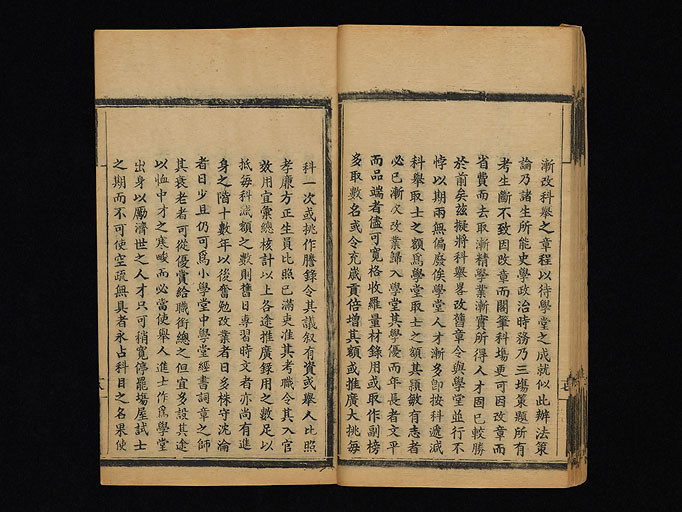 漸改科舉之章程以待學堂之成就似此辦法策
論乃諸生所能史學政治時務乃三場策題所有
考生斷不致因改章而閣筆科場更可因改章而
省費而去取漸精學業漸實所得人才固已較勝
於前矣茲擬將科舉畧改舊章令與學堂並行不
悖以期兩無偏廢俟學堂人才漸多卽按科遞減
科舉取士之額爲學堂取士之額其穎敏有志者
必已漸次改業歸入學堂其學優而年長者文平
而品端者儘可寬格收羅量材錄用或取作副榜
多取數名或令充歲貢倍增其額或推廣大挑每
科一次或挑作謄錄令其議叙有資或舉人比照
孝廉方正生員比照已滿吏准其考職令其入官
效用宜彙總核計以上各途推廣錄用之數足以
抵每科減額之數則舊日專習時文者亦尚有進
身之階十數年以後奮勉改業者日多株守沈淪
者日少且仍可爲小學堂中學堂經書詞章之師
其衰老者可從優賞給職銜總之但宜多設其途
以恤中才之寒畯而必當使舉人進士作爲學堂
出身以勵濟世之人才只可稍寬停罷場屋試士
之期而不可使空疏無具者永占科目之名果使